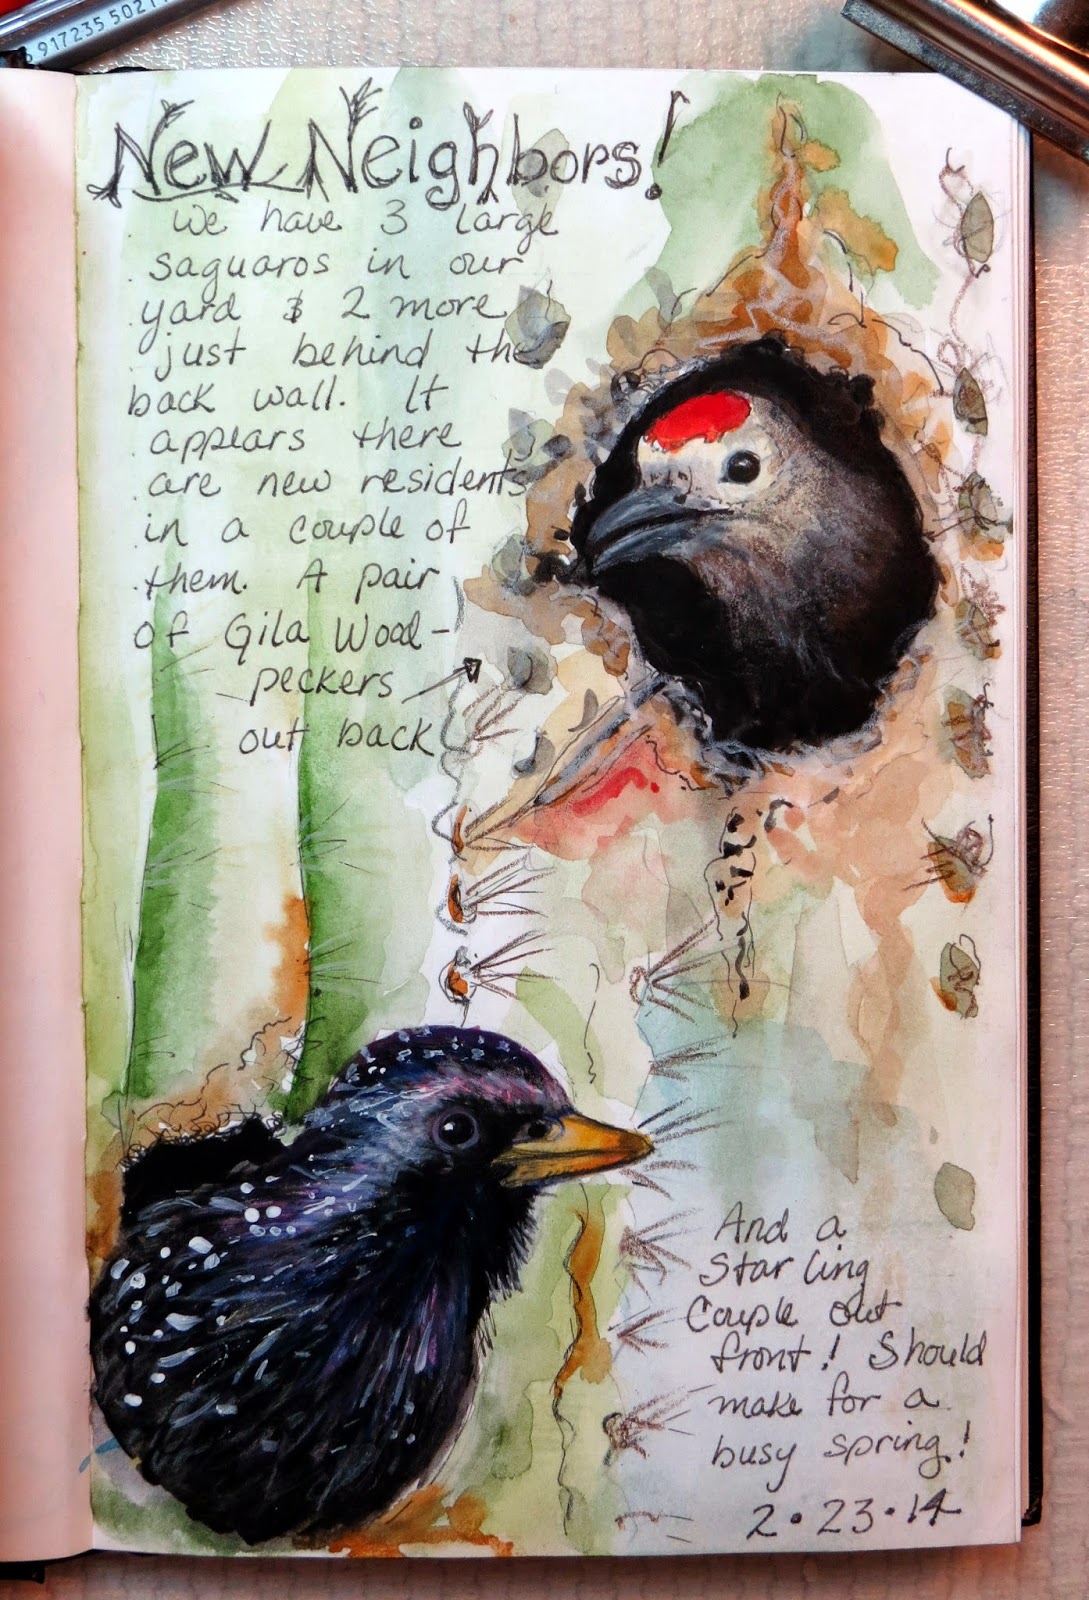 917235 5021
New Neighbors!
We have 3 large
saguaros in our
yard & 2 more
just behind the
back wall. It
appears there
are new residents
in a couple of
them. A pair
of Gila Wood-
peckers
out back
And a
Starling
Couple out
front! Should
make for a
busy spring!
2·23·14